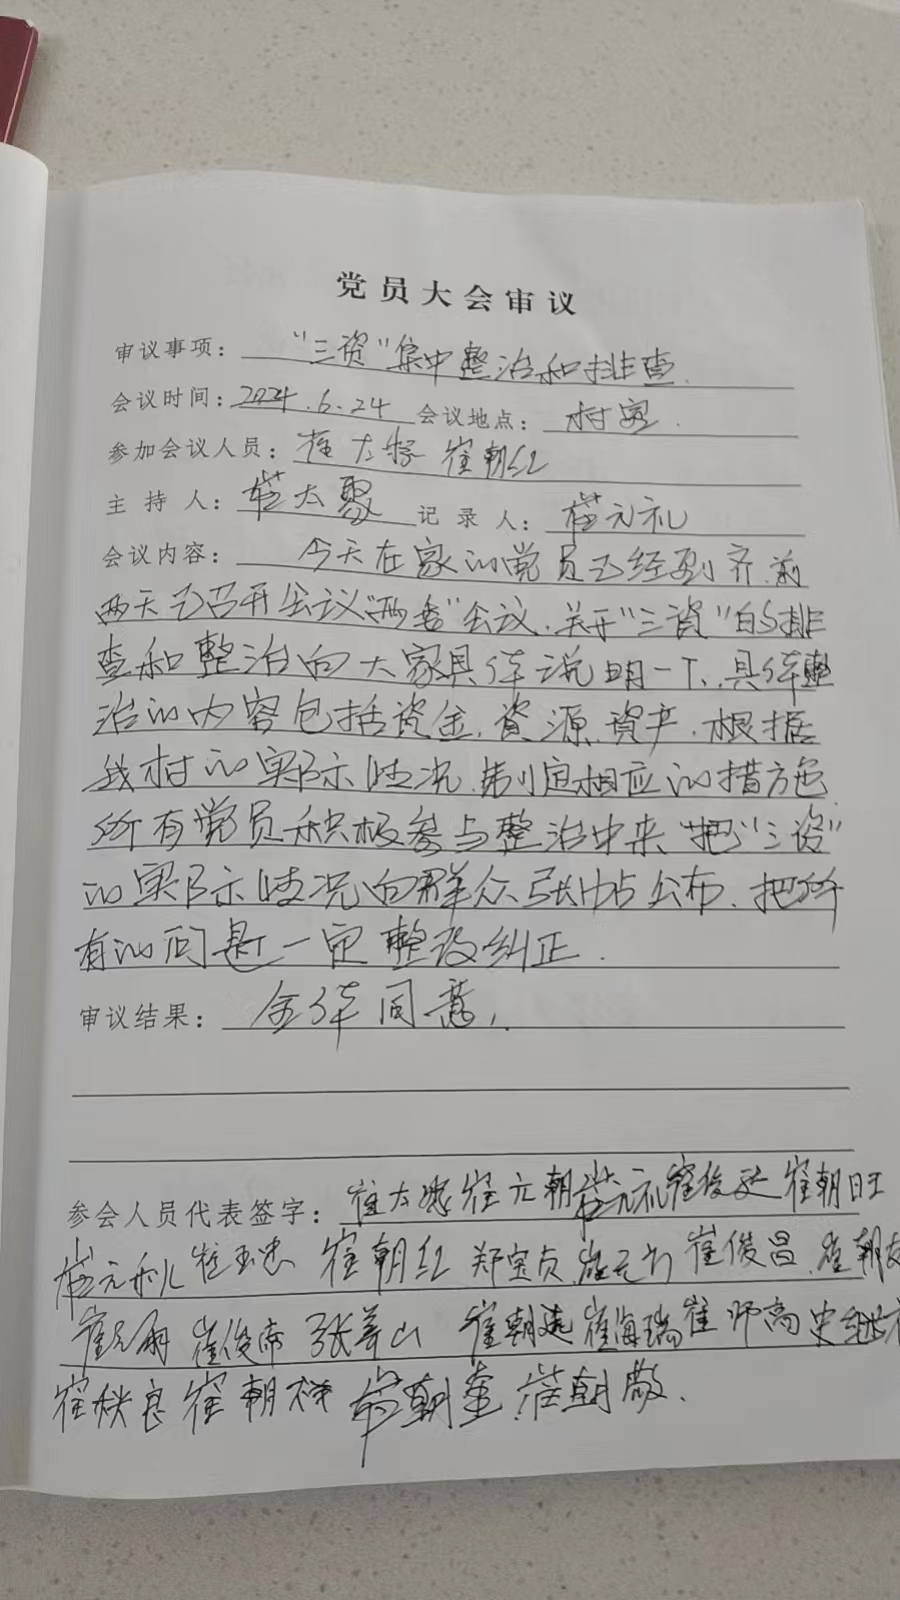 党员大会审议
审议事项：“三资”集中整治和排查.
会议时间：2024.6.24 会议地点：村室.
参加会议人员：崔太 崔朝红
主持人：崔太聚 记录人：崔元礼
会议内容：今天在家的党员已经到齐.前
两天已召开会议“两委”会议.关于“三资”的排
查和整治向大家具体说明一下.具体整
治的内容包括资金.资源.资产.根据
我村的实际情况.制定相应的措施
所有党员积极参与整治中来“把”三资”
的实际情况向群众张帖公布.把所
有的问题一定整改纠正.
审议结果：全体同意.
参会人员代表签字：崔太 崔元朝 崔元礼 崔俊 崔朝旺
崔元 崔玉忠 崔朝红 郑宝贞 崔元 崔俊昌 崔朝
崔俊 张 山 崔朝 崔海瑞 崔师高 史继
崔秋良 崔朝 崔朝奎 崔朝敬.